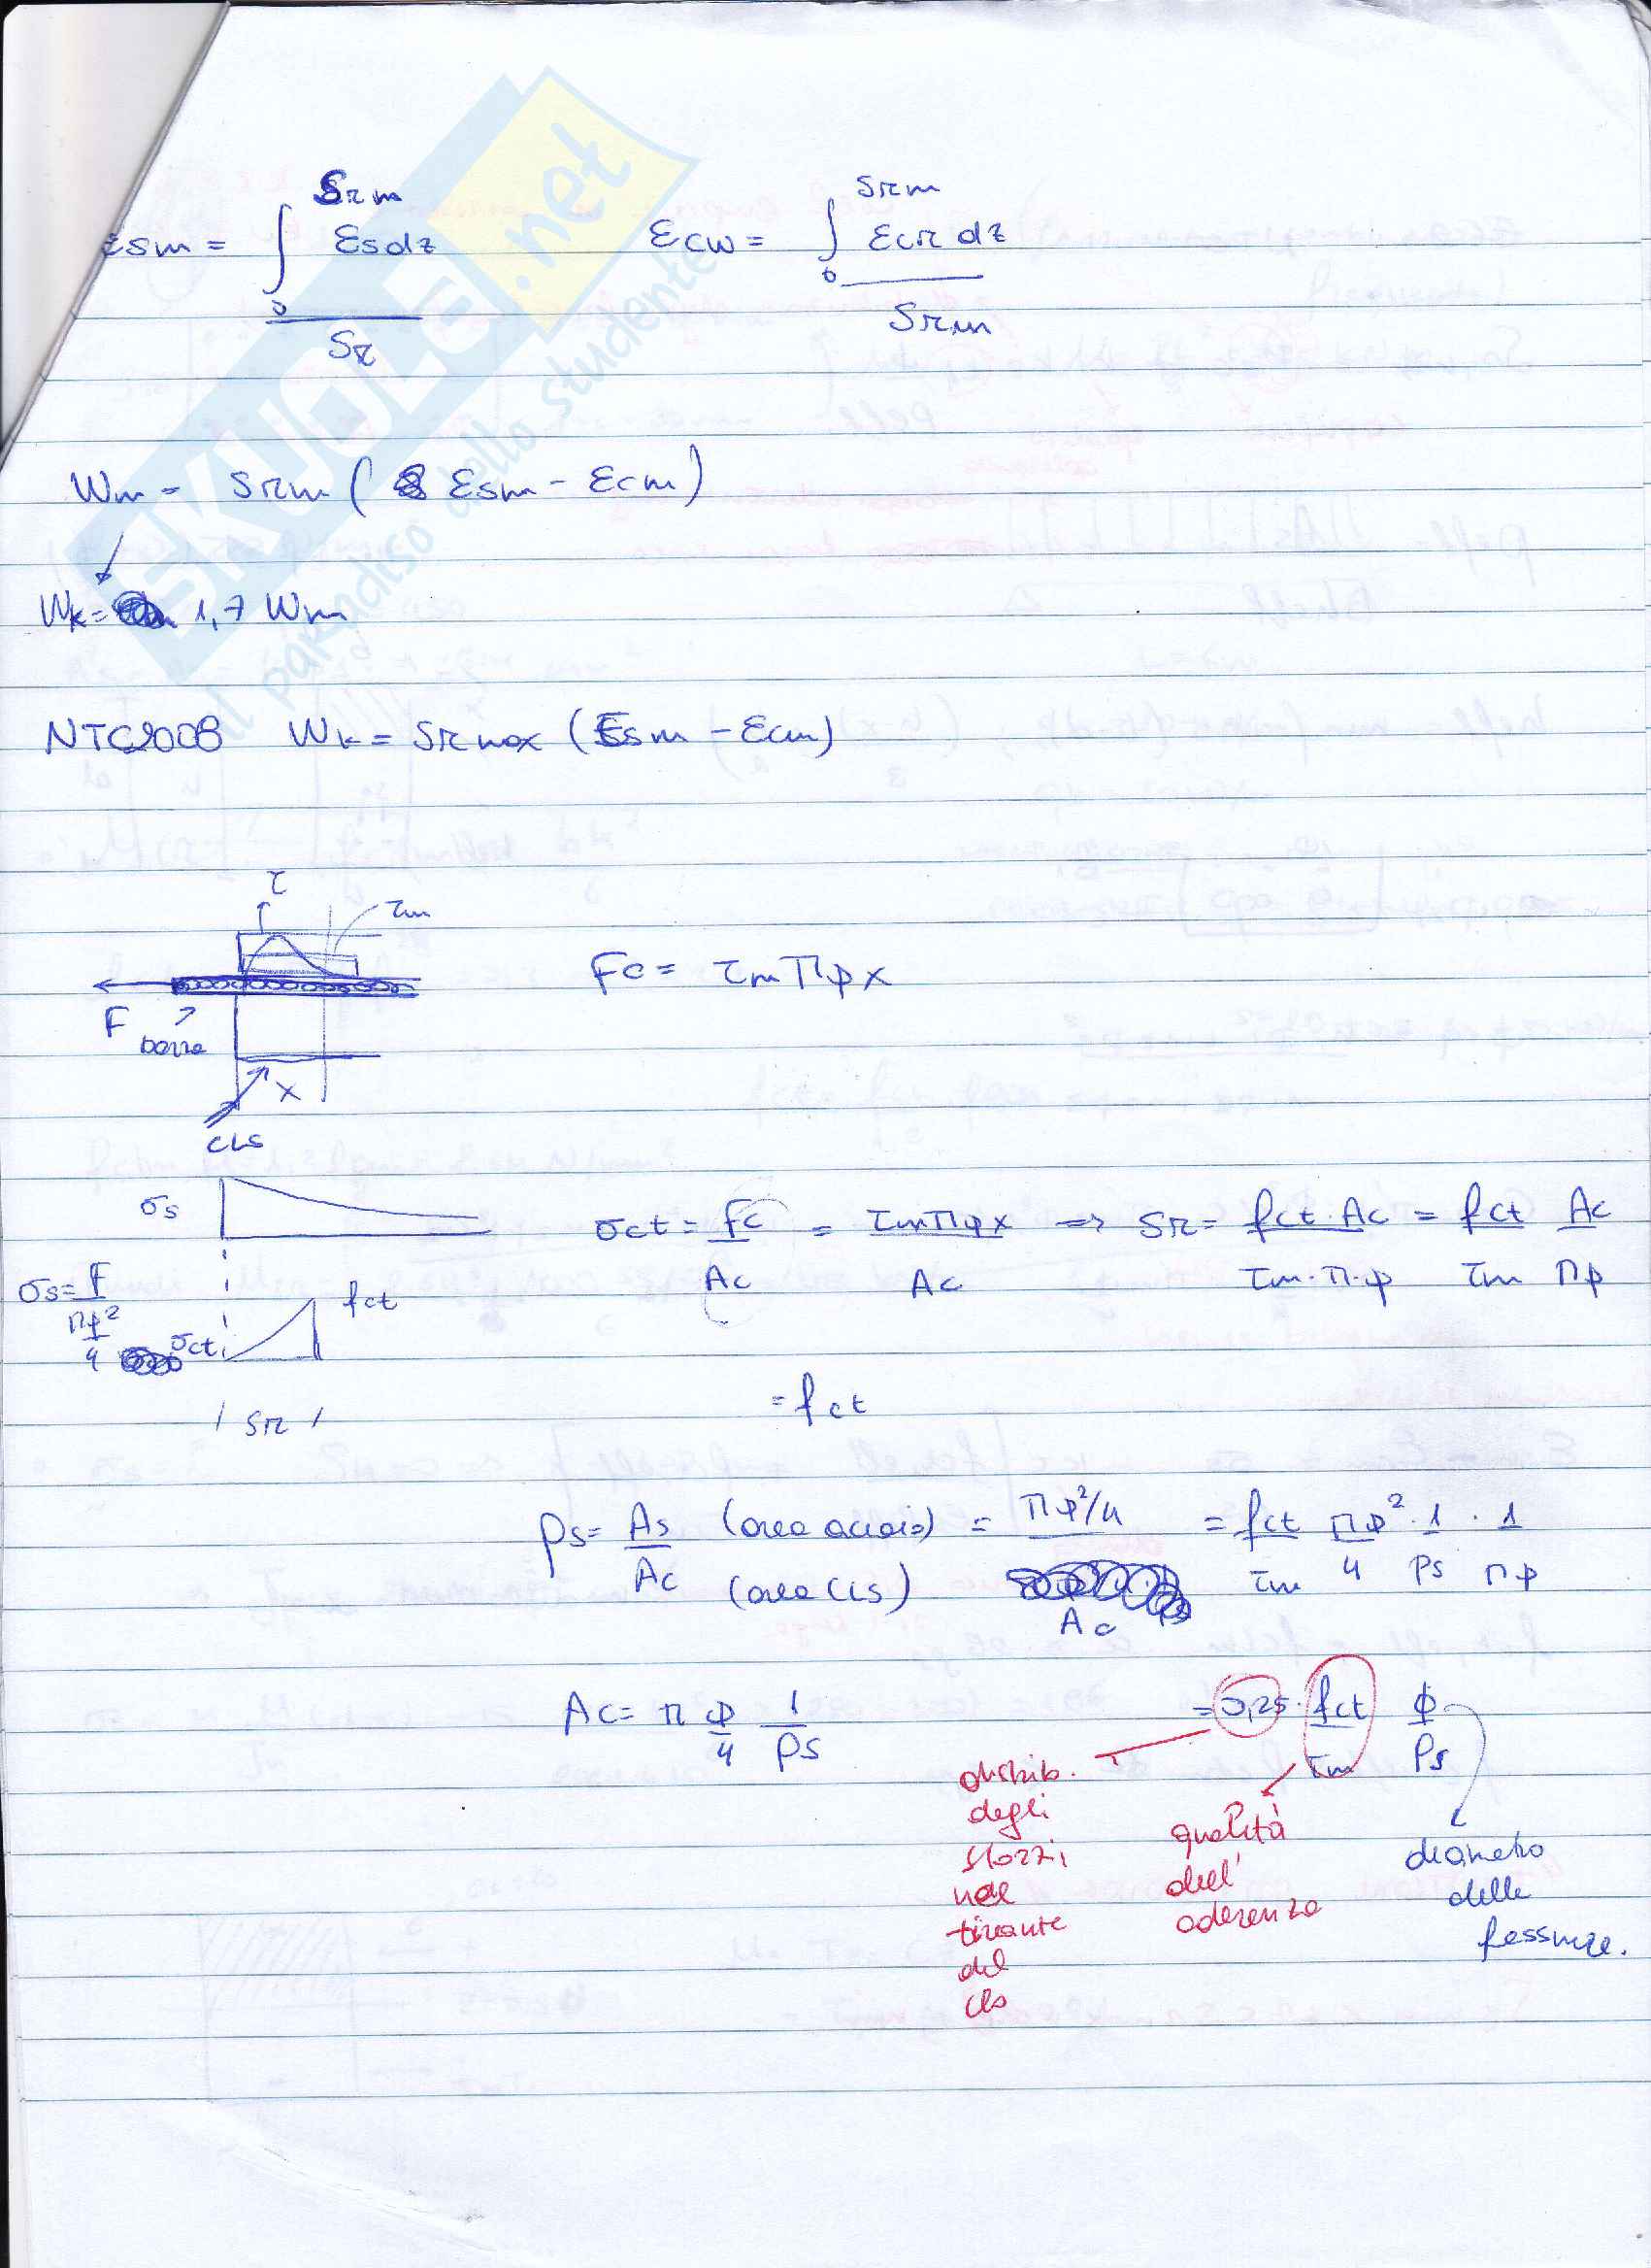 SKUOLA.net
il paradiso dello studente
εsm = ∫₀^Srm εs dz / Sr    εcm = ∫₀^Srm εcr dz / Srm
Wm = Srm (εsm - εcm)
Wk = 1,7 Wm
NTC2008 Wk = Sr max (εsm - εcm)
τ
τm
Fc = τm π φ x
F
barra
x
cls
σs
σct = Fc / Ac = τm π φ x / Ac => Sr = fct · Ac / τm · π · φ = fct / τm Ac / π φ
σs = F / πφ²/4
fct
σct
Sr
= fct
ρs = As / Ac (area acciaio) / (area cls) = πφ²/4 / Ac = fct / τm πφ² / 4 · 1 / ρs · 1 / πφ
Ac = π φ / 4 1 / ρs    = 0,25 · fct / τm φ / ρs
distrib.
degli
sforzi
nel
tirante
del
cls
qualità
dell'
aderenza
diametro
delle
fessure.